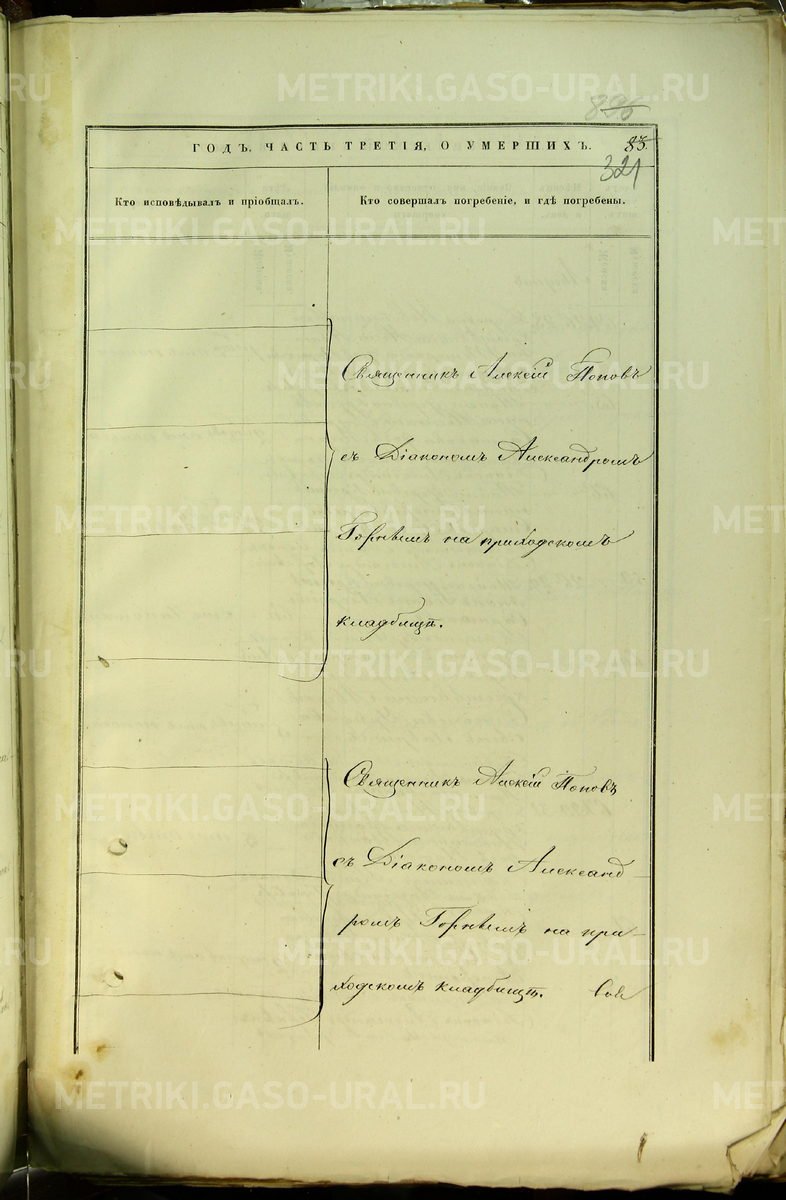 895
ГОДЪ, ЧАСТЬ ТРЕТІЯ, О УМЕРШИХЪ. 83.
321
Кто исповѣдывалъ и пріобщалъ. Кто совершалъ погребеніе, и гдѣ погребены.
Священникъ Алексій Поповъ
съ Діакономъ Александромъ
Горнымъ на приходскомъ
кладбищѣ.
Священникъ Алексій Поповъ
съ Діакономъ Александ-
ромъ Горнымъ на при-
ходскомъ кладбищѣ.
METRIKI.GASO-URAL.RU